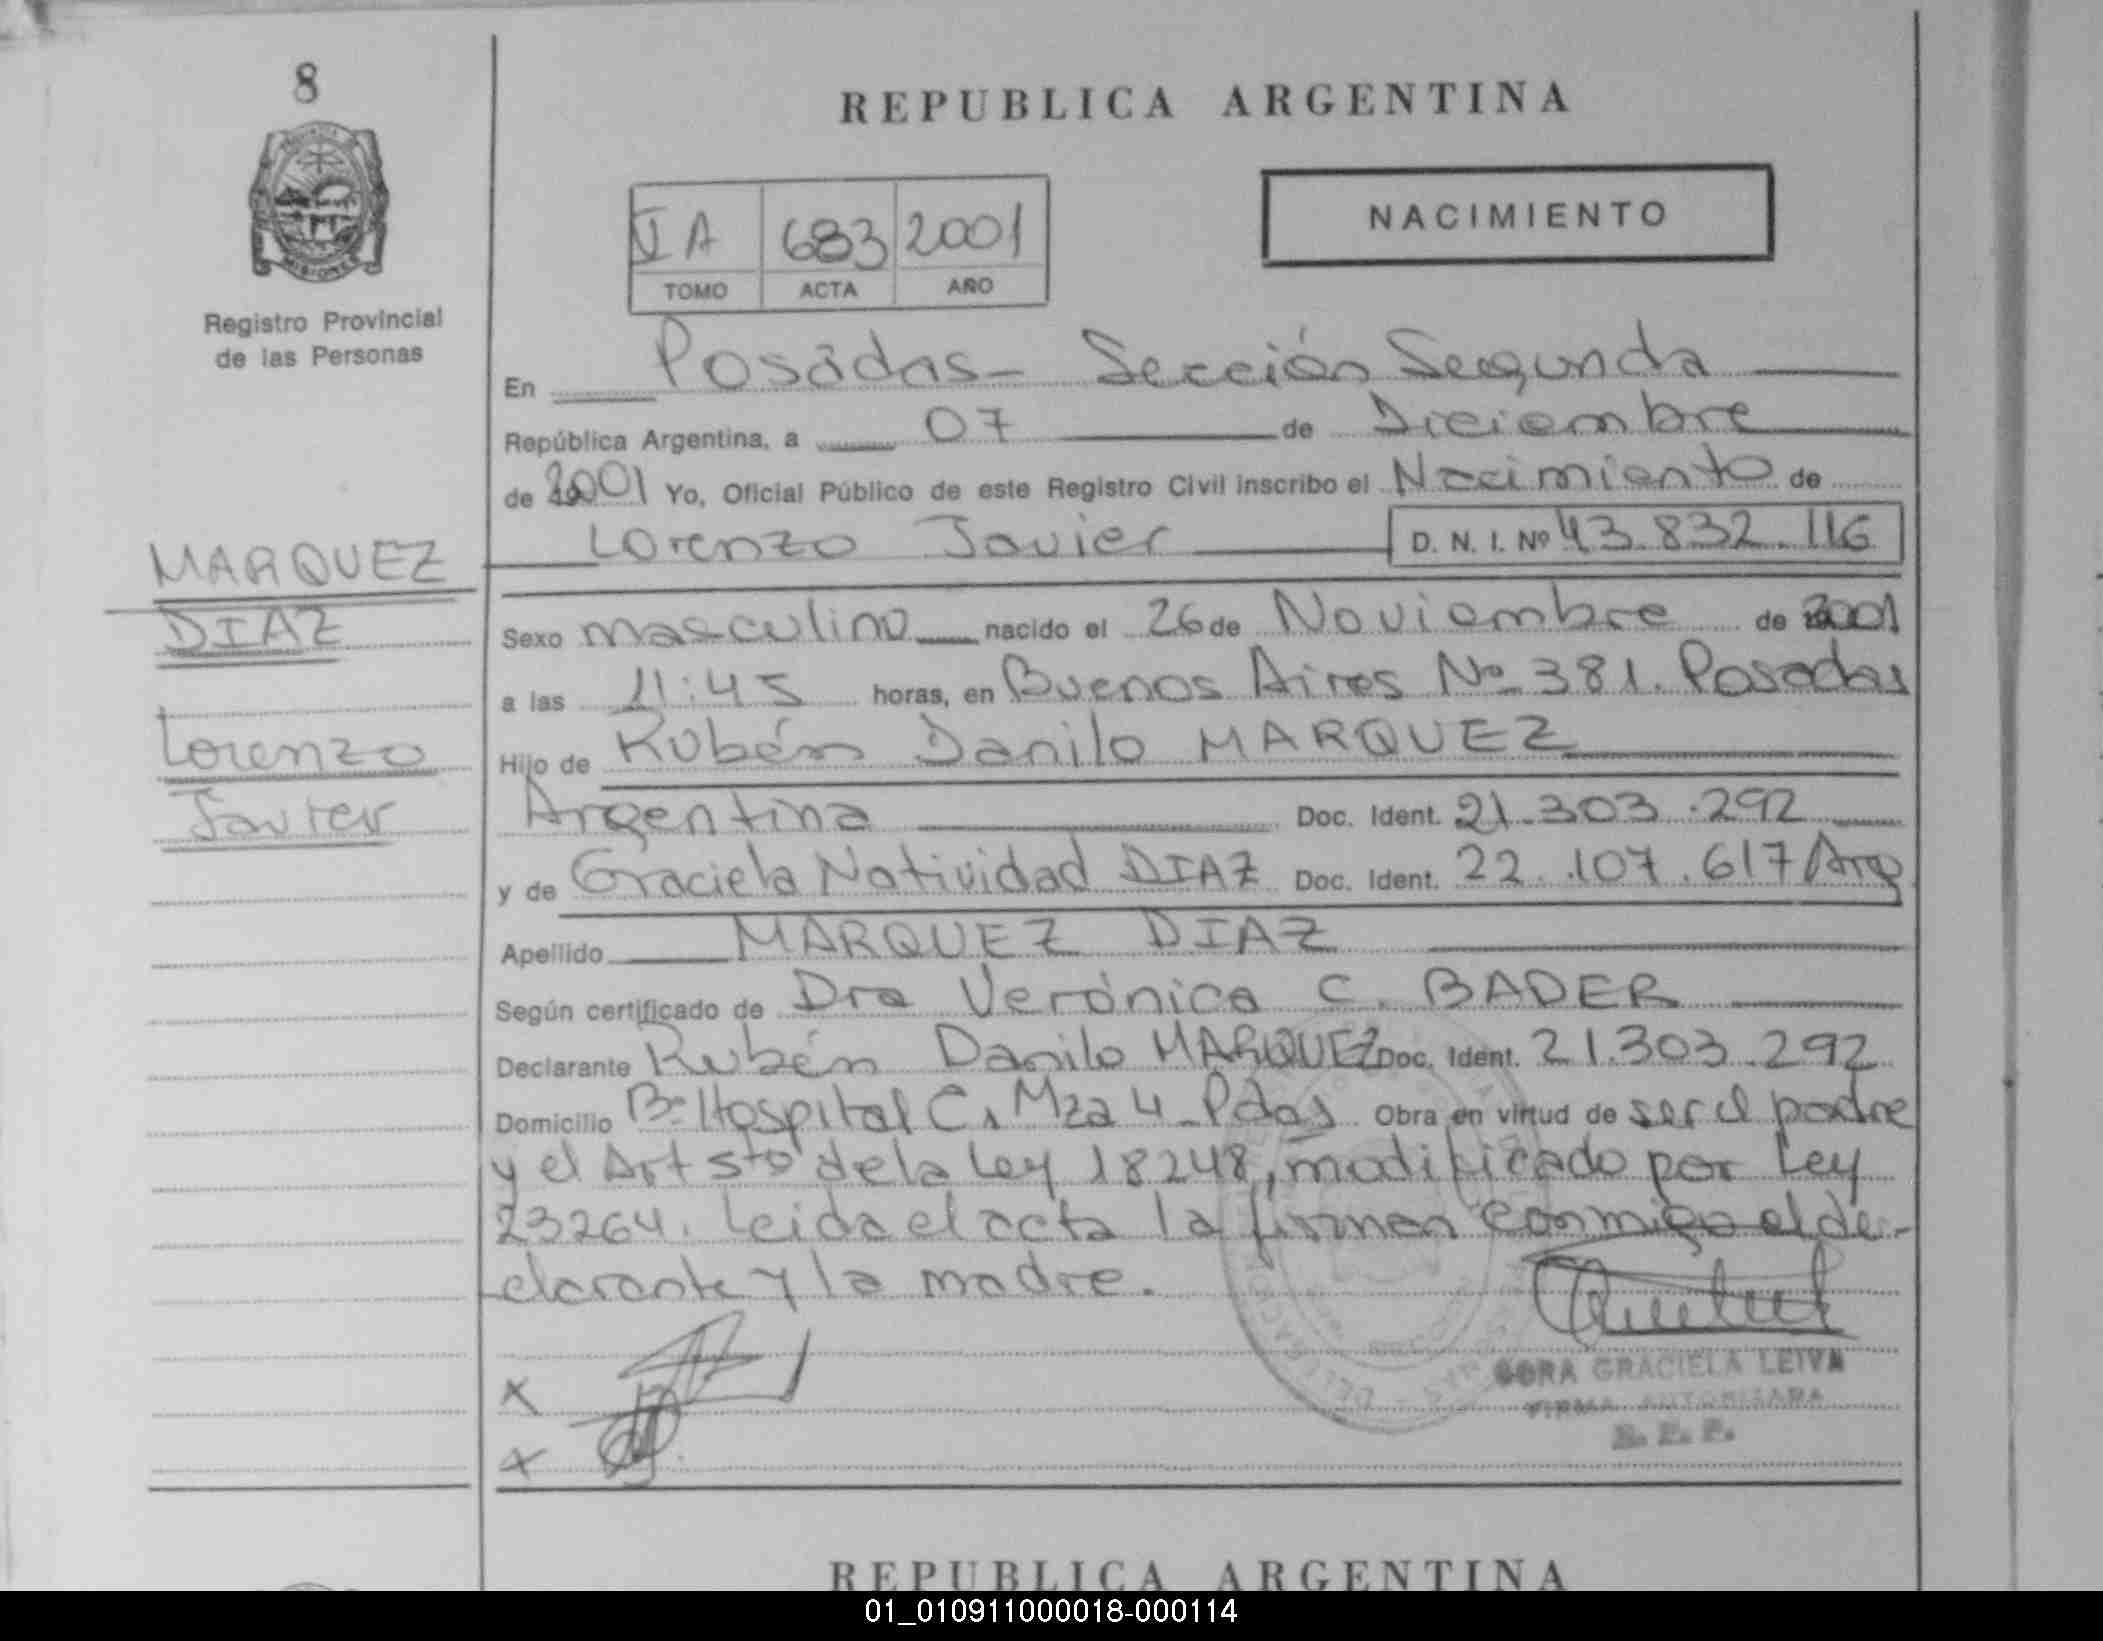 8
MISIONES
Registro Provincial
de las Personas
MARQUEZ
DIAZ
Lorenzo
Javier
REPUBLICA ARGENTINA
NACIMIENTO
A 683 2001
TOMO ACTA AÑO
En Posadas - Sección Segunda
República Argentina, a 07 de Diciembre
de 2001 Yo, Oficial Público de este Registro Civil inscribo el Nacimiento de
Lorenzo Javier D. N. I. Nº 43.832.116
Sexo masculino nacido el 26 de Noviembre de 2001
a las 11:45 horas, en Buenos Aires Nº 381. Posadas
Hijo de Rubén Danilo MARQUEZ
Argentina Doc. Ident. 21.303.292
y de Graciela Natividad DIAZ Doc. Ident. 22.107.617 Arg
Apellido MARQUEZ DIAZ
Según certificado de Dra Verónica C. BADER
Declarante Rubén Danilo MARQUEZ Doc. Ident. 21.303.292
Domicilio Bº Hospital C. Mza 4 - Pdas Obra en virtud de ser el padre
y el Art 5to de la Ley 18248, modificado por Ley
23264. Leida el acta la firman conmigo el de-
clarante y la madre.
X
X
GRACIELA LEIVA
FIRMA AUTORIZADA
R. P. P.
REPUBLICA ARGENTINA
01_010911000018-000114